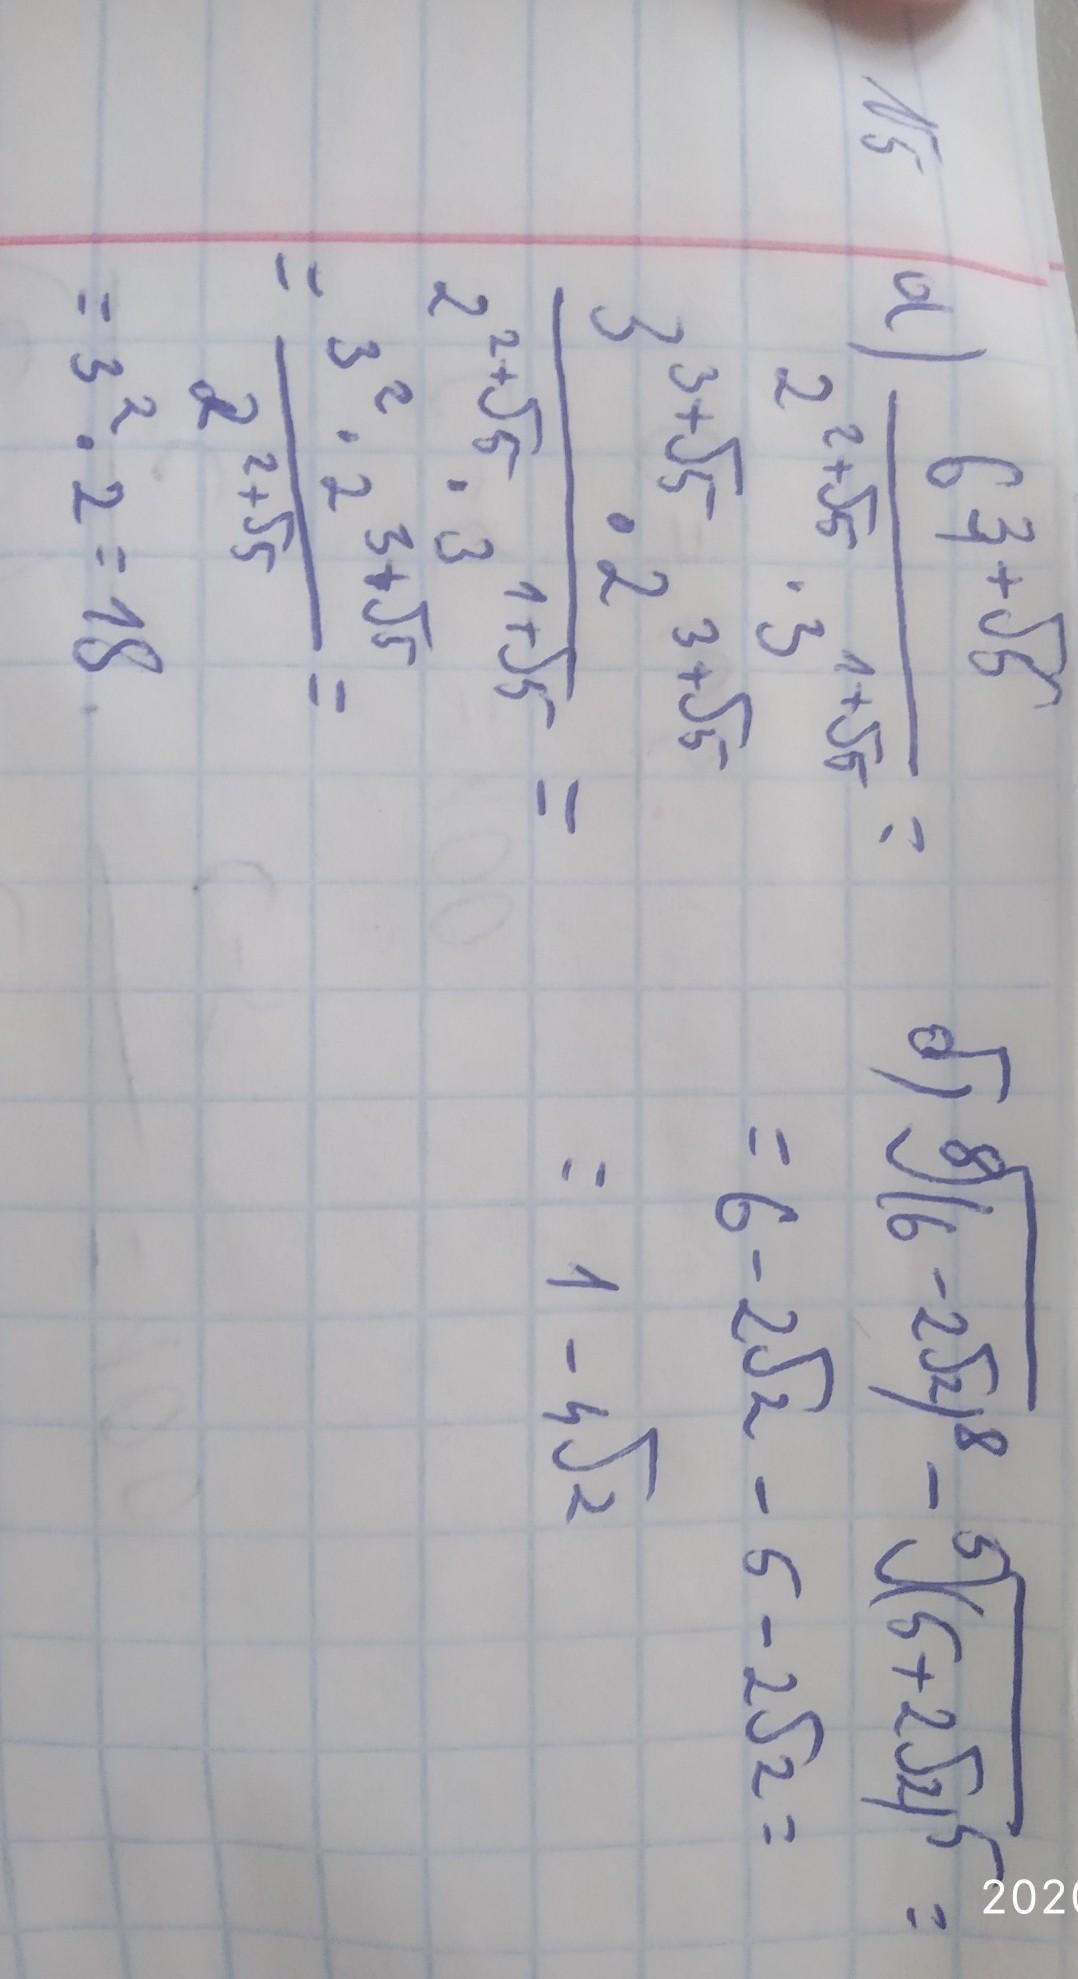 √5
а) 6^(3+√5) / (2^(2+√5) · 3^(1+√5)) =
(3^(3+√5) · 2^(3+√5)) / (2^(2+√5) · 3^(1+√5)) =
= (3^2 · 2^(3+√5)) / 2^(2+√5) =
= 3^2 · 2 = 18
б) ⁸√(6-2√2)^8 - ⁵√(5+2√2)^5 =
= 6-2√2 - 5-2√2 =
= 1-4√2
2020